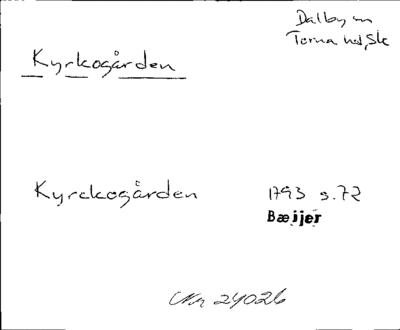 Dalby sn
Torna hd, Sk
Kyrkogården
Kyrckogården 1793 s. 72
Bæijer
Nr 24026